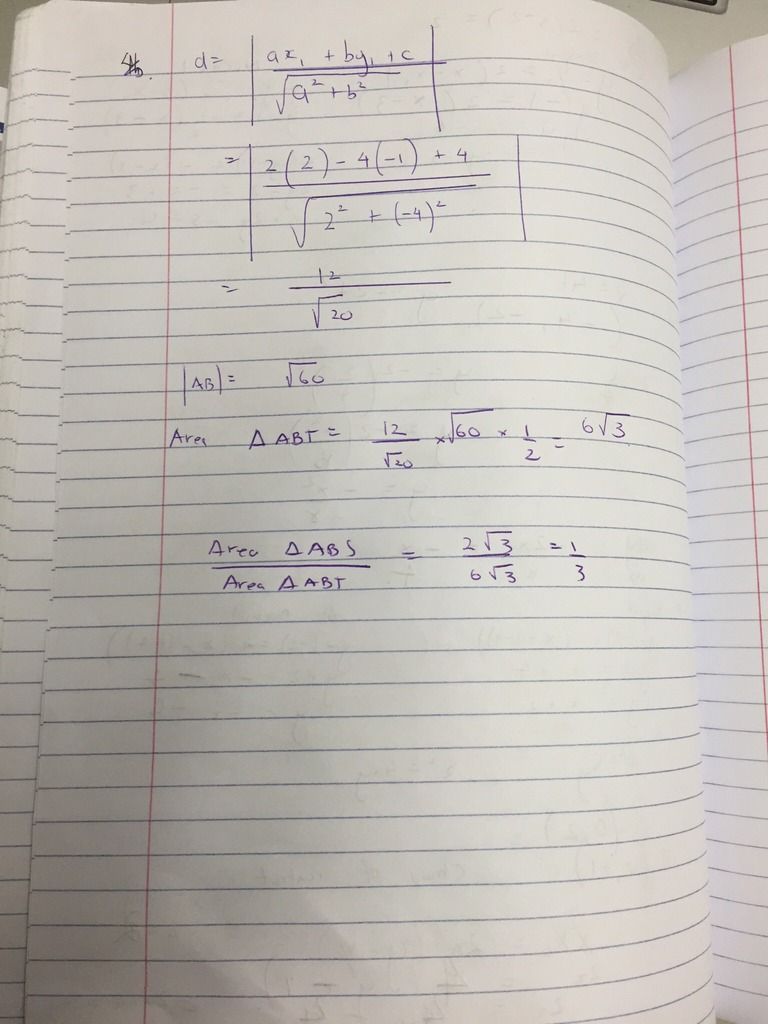 d= | ax₁ + by₁ + c / √a² + b² |
= | 2(2) - 4(-1) + 4 / √2² + (-4)² |
= 12 / √20
|AB| = √60
Area Δ ABT = 12/√20 × √60 × 1/2 = 6√3
Area Δ ABS / Area Δ ABT = 2√3 / 6√3 = 1/3